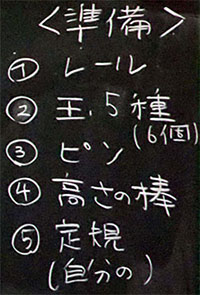 <準備>
① レール
② 玉.5種
(6個)
③ ピン
④ 高さの棒
⑤ 定規
(自分の)